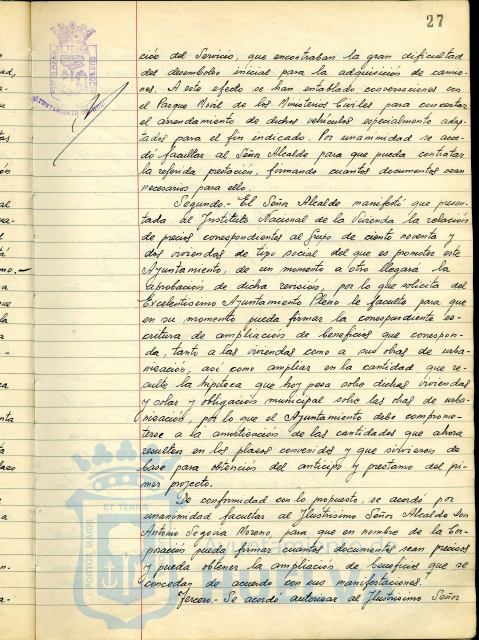 27
ción del Servicio, que encontraban la gran dificultad
del desembolso inicial para la adquisición de camio-
nes. A este efecto se han entablado conversaciones con
el Parque Movil de los Ministerios Civiles para concertar
el arrendamiento de dichos vehículos especialmente adap-
tados para el fin indicado. Por unanimidad se acor-
dó facultar al Señor Alcalde para que pueda contratar
la referida prestación, firmando cuantos documentos sean
necesarios para ello.
Segundo.- El Señor Alcalde manifestó que presen-
tada al Instituto Nacional de la Vivienda la relación
de precios correspondientes al Grupo de ciento noventa y
dos viviendas de tipo social del que es promotor este
Ayuntamiento, de un momento a otro llegará la
aprobación de dicha revisión, por lo que solicita del
Excelentísimo Ayuntamiento Pleno le faculte para que
en su momento pueda firmar la correspondiente es-
critura de ampliación de beneficios que correspon-
da, tanto a las viviendas como a sus obras de urba-
nización, así como ampliar en la cantidad que re-
sulte la hipoteca que hoy pesa sobre dichas viviendas
y solar y obligación municipal sobre las obras de urba-
nización, por lo que el Ayuntamiento debe comprome-
terse a la amortización de las cantidades que ahora
resulten en los plazos convenidos y que sirvieron de
base para obtención del anticipo y prestamo del pri-
mer proyecto.
De conformidad con lo propuesto, se acordó por
unanimidad facultar al Ilustrísimo Señor Alcalde Don
Antonio Segovia Moreno, para que en nombre de la Cor-
poración pueda firmar cuantos documentos sean precisos
y pueda obtener la ampliación de beneficios que se
concedan de acuerdo con sus manifestaciones.
Tercero.- Se acordó autorizar al Ilustrísimo Señor